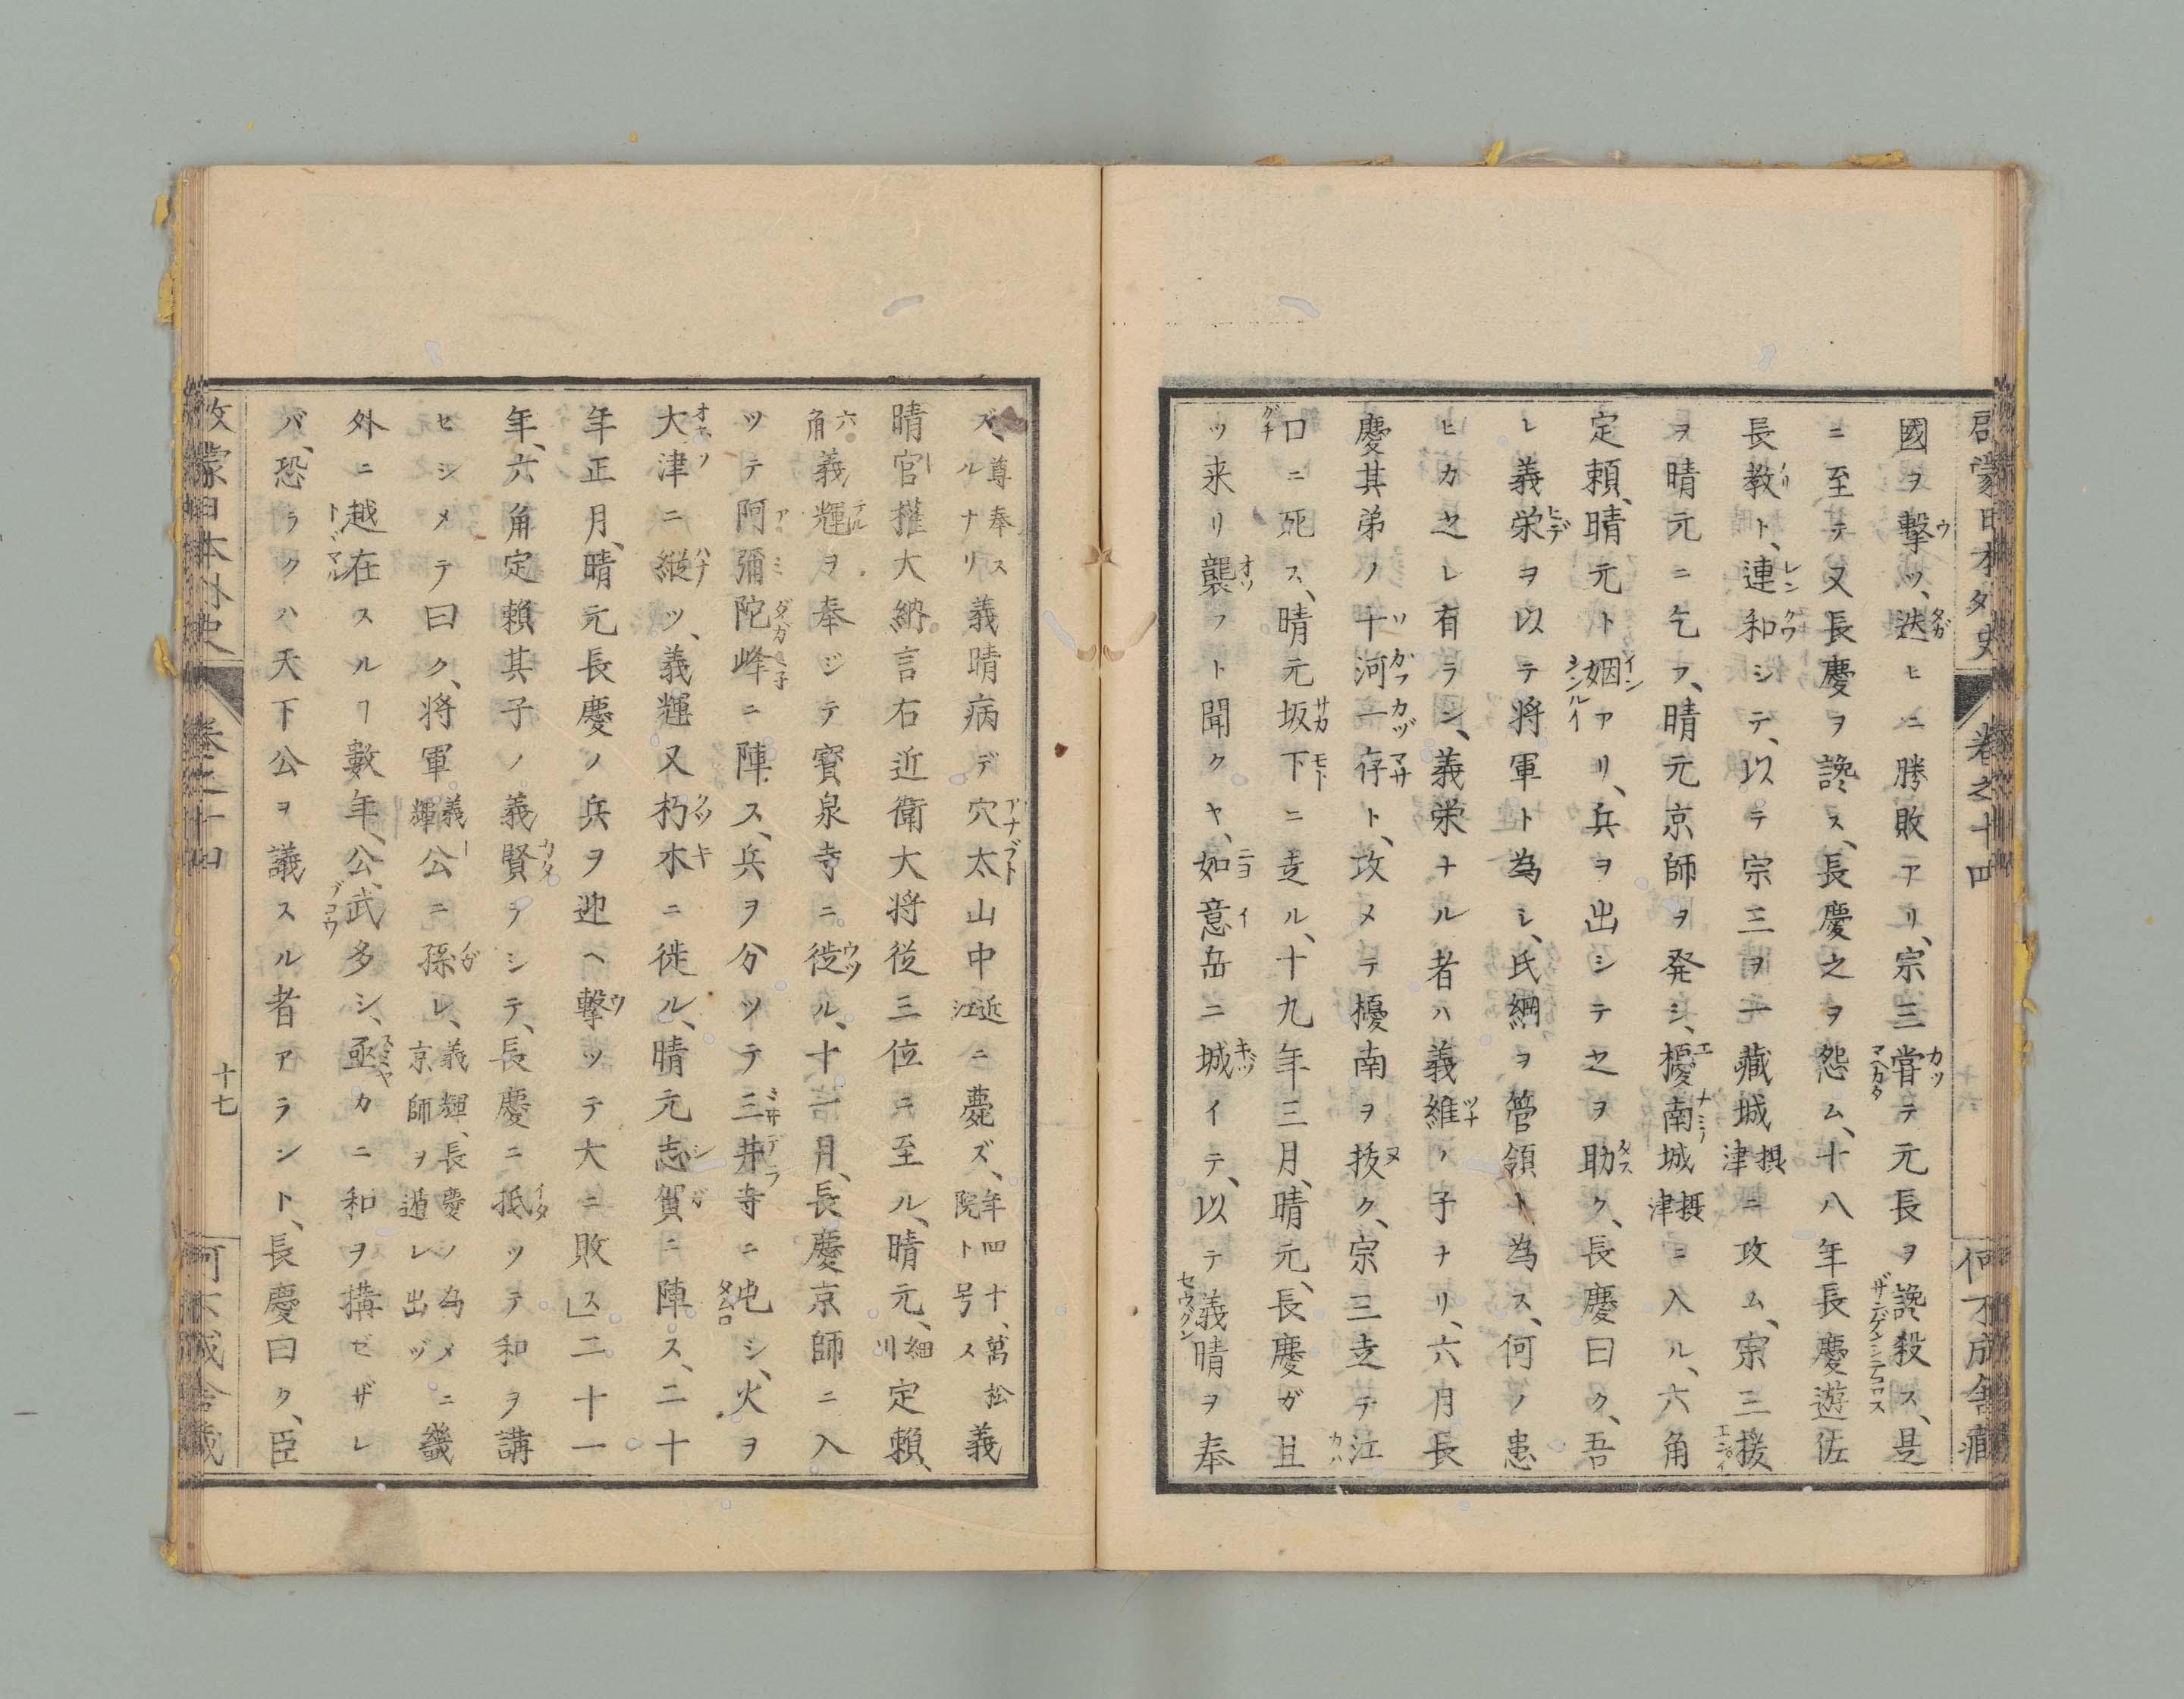 啓蒙日本外史 巻之十四 何不成舎藏
國ヲ撃ツ、迭ヒニ勝敗アリ、宗三甞テ元長ヲ讒殺ス、是
ニ至テ又長慶ヲ讒ス、長慶之ヲ怨ム、十八年長慶遊佐
長教ト、連和シテ、以テ宗三ヲ一藏城摂津ニ攻ム、宗三援
ヲ晴元ニ乞フ、晴元京師ヲ発シ、榎南城摂津ニ入ル、六角
定頼、晴元ト姻アリ、兵ヲ出シテ之ヲ助ク、長慶曰ク、吾
レ義栄ヲ以テ将軍ト為シ、氏綱ヲ管領ト為ス、何ノ患
ヒカ之レ有ラン、義栄ナル者ハ義維ノ子ナリ、六月長
慶其弟ノ十河一存ト、攻メテ榎南ヲ抜ク、宗三走テ江
口ニ死ス、晴元坂下ニ走ル、十九年三月、晴元、長慶ガ且
ツ来リ襲フト聞クヤ、如意岳ニ城イテ、以テ義晴ヲ奉
ズ、尊奉スルナリ義晴病デ穴太山中近江ニ薨ズ、年四十、萬松院ト号ス義
晴官權大納言右近衛大将従三位ニ至ル、晴元、細川定頼、
六角義輝ヲ奉ジテ寳泉寺ニ徙ル、十一月、長慶京師ニ入
ツテ阿彌陀峰ニ陣ス、兵ヲ分ツテ三井寺ニ屯シ、火ヲ
大津ニ縦ツ、義輝又朽木ニ徙ル、晴元志賀ニ陣ス、二十
年正月、晴元長慶ノ兵ヲ迎ヘ撃ツテ大ニ敗ス」二十一
年、六角定頼其子ノ義賢ヲシテ、長慶ニ抵ツテ和ヲ講
ヒシメテ曰ク、将軍義輝公ニ孫レ、義輝、長慶ノ為メニ京師ヲ遁レ出ヅ畿
外ニ越在スルヿ數年、公、武多シ、亟カニ和ヲ搆ゼザレ
バ、恐ラクハ天下公ヲ議スル者アラント、長慶曰ク、臣
啓蒙日本外史 巻之十四 十七 何不成舎藏